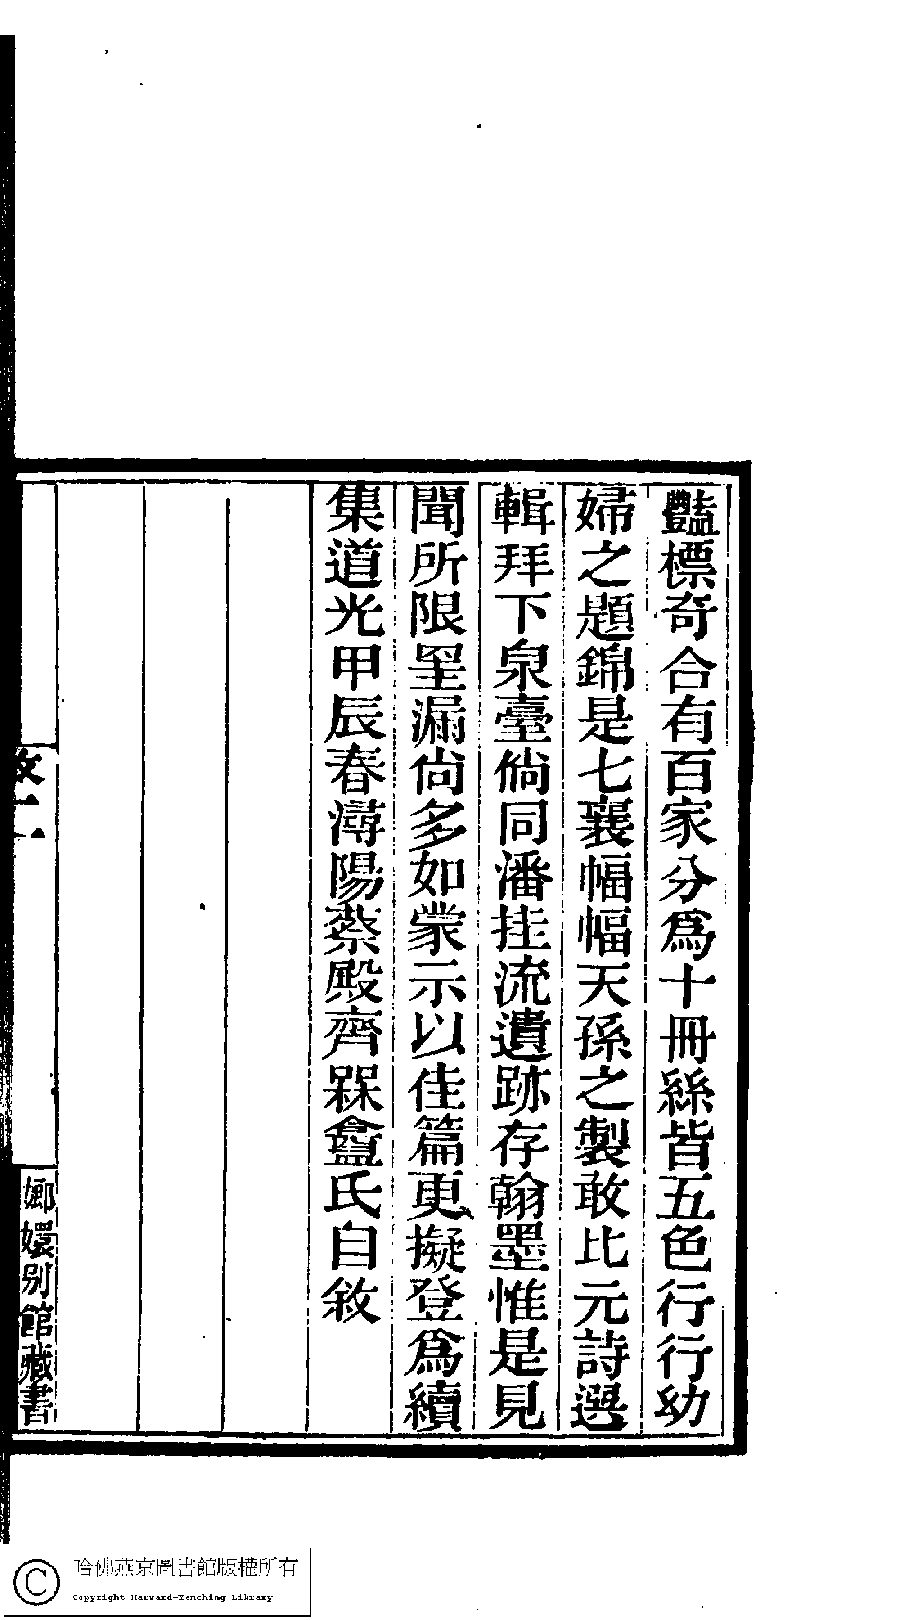 豔標奇合有百家分爲十冊絲皆五色行行幼
婦之題錦是七襄幅幅天孫之製敢比元詩選
輯拜下泉臺倘同潘挂流遺跡存翰墨惟是見
聞所限罣漏尙多如蒙示以佳篇更擬登爲續
集道光甲辰春潯陽蔡殿齊槑盦氏自敘
敘 二
嫏嬛別館藏書
哈佛燕京圖書館版權所有
Copyright Harvard-Yenching Library